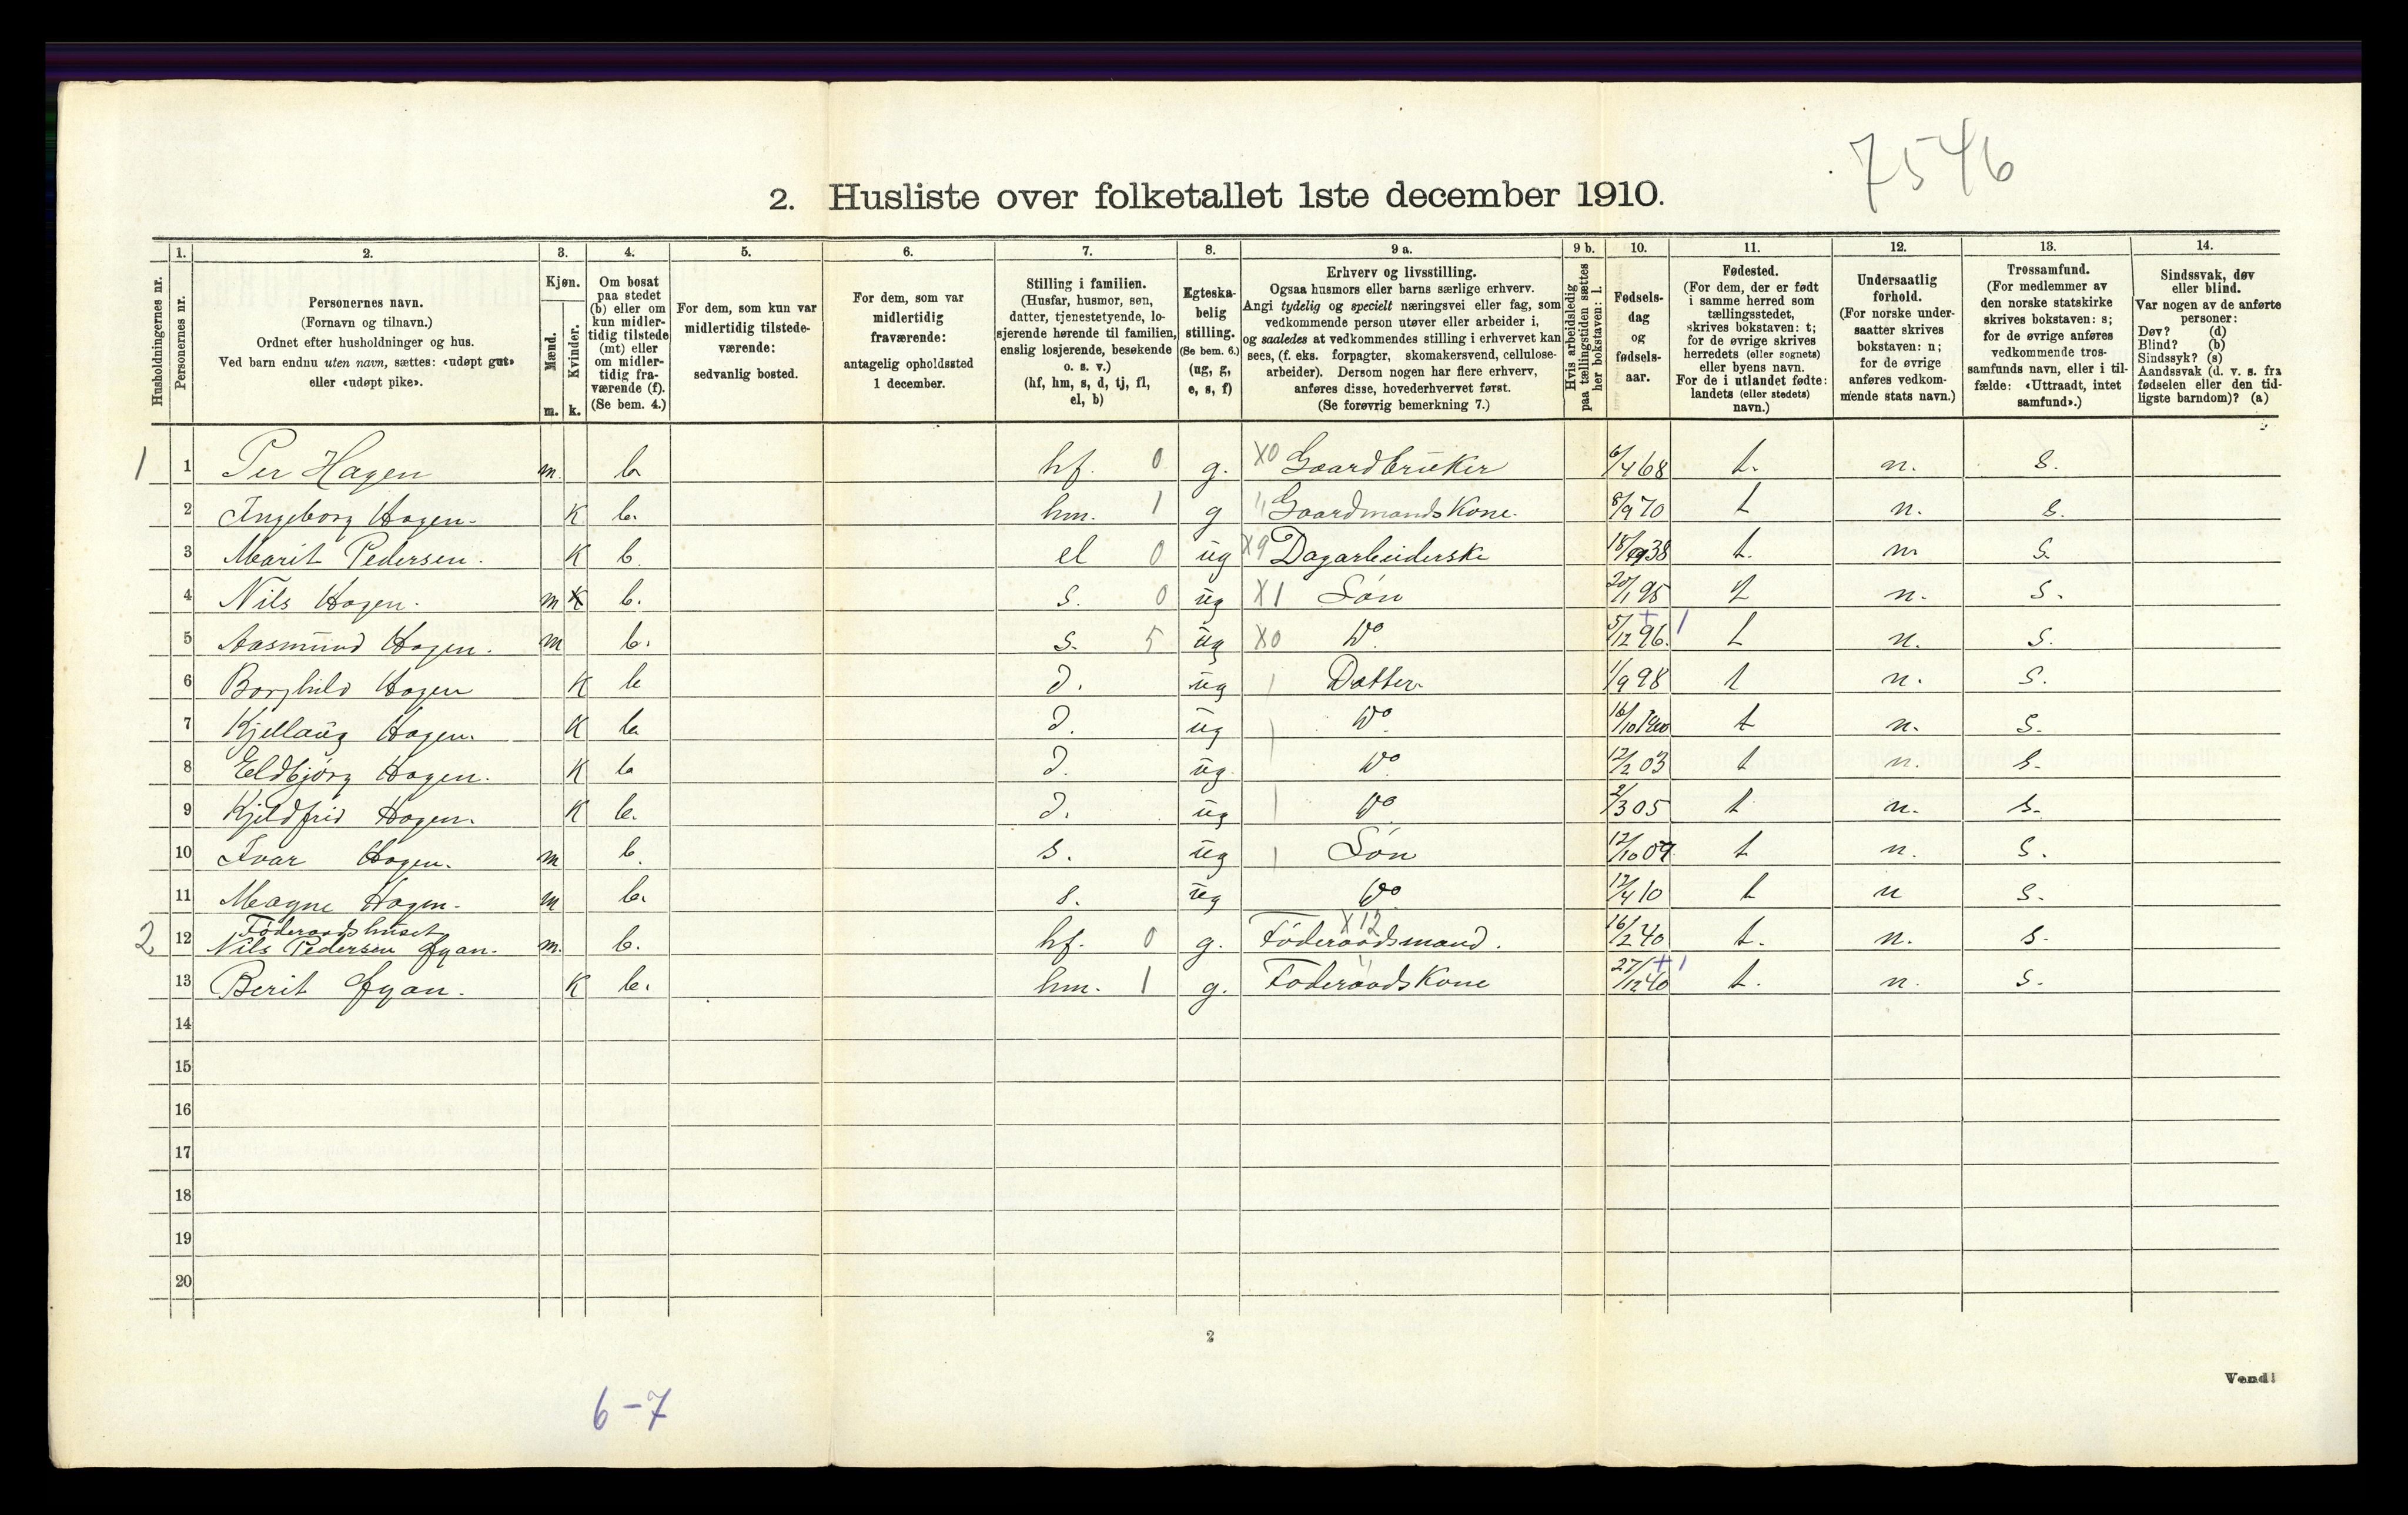 7546
2. Husliste over folketallet 1ste december 1910.
Husholdningernes nr.
1.
Personernes nr.
2.
Personernes navn.
(Fornavn og tilnavn.)
Ordnet efter husholdninger og hus.
Ved barn endnu uten navn, sættes: «udøpt gut»
eller «udøpt pike».
3.
Kjøn.
Mænd.
m.
Kvinder.
k.
4.
Om bosat
paa stedet
(b) eller om
kun midler-
tidig tilstede
(mt) eller
om midler-
tidig fra-
værende (f).
(Se bem. 4.)
5.
For dem, som kun var
midlertidig tilstede-
værende:
sedvanlig bosted.
6.
For dem, som var
midlertidig
fraværende:
antagelig opholdssted
1 december.
7.
Stilling i familien.
(Husfar, husmor, søn,
datter, tjenestetyende, lo-
sjerende hørende til familien,
enslig losjerende, besøkende
o. s. v.)
(hf, hm, s, d, tj, fl,
el, b)
8.
Egteska-
belig
stilling.
(Se bem. 6.)
(ug, g,
e, s, f)
9 a.
Erhverv og livsstilling.
Ogsaa husmors eller barns særlige erhverv.
Angi tydelig og specielt næringsvei eller fag, som
vedkommende person utøver eller arbeider i,
og saaledes at vedkommendes stilling i erhvervet kan
sees, (f. eks. forpagter, skomakersvend, cellulose-
arbeider). Dersom nogen har flere erhverv,
anføres disse, hovederhvervet først.
(Se forøvrig bemerkning 7.)
9 b.
Hvis arbeidsledig
paa tællingstiden sættes
her bokstaven: l.
10.
Fødsels-
dag
og
fødsels-
aar.
11.
Fødested.
(For dem, der er født
i samme herred som
tællingsstedet,
skrives bokstaven: t;
for de øvrige skrives
herredets (eller sognets)
eller byens navn.
For de i utlandet fødte:
landets (eller stedets)
navn.)
12.
Undersaatlig
forhold.
(For norske under-
saatter skrives
bokstaven: n;
for de øvrige
anføres vedkom-
mende stats navn.)
13.
Trossamfund.
(For medlemmer av
den norske statskirke
skrives bokstaven: s;
for de øvrige anføres
vedkommende tros-
samfunds navn, eller i til-
fælde: «Uttraadt, intet
samfund».)
14.
Sindssvak, døv
eller blind.
Var nogen av de anførte
personer:
Døv? (d)
Blind? (b)
Sindssyk? (s)
Aandssvak (d. v. s. fra
fødselen eller den tid-
ligste barndom)? (a)
1 1 Per Hagen m. b. hf. 0 g. X0 Gaardbruker 6/4 68 t. n. s.
2 Ingeborg Hagen. K b. hm. 1 g " Gaardmandskone. 8/9 70 t n. s.
3 Marit Pedersen. K b. el 0 ug X9 Dagarbeiderske 18/9 38 t. n. s.
4 Nils Hagen. m K b. s. 0 ug X1 Søn 20/1 95 t n. s.
5 Aasmund Hagen. m b. s. 5 ug X0 Do 5/12 96. + 1 t n. s.
6 Borghild Hagen K b d. ug Datter 1/9 98 t n. s.
7 Kjellaug Hagen. K b. d. ug Do 16/10 1900 t n. s.
8 Eldbjørg Hagen. K b d. ug. Do 12/2 03 t n. s.
9 Kjeldfrid Hagen. K b. d. ug Do 2/3 05 t n. s.
10 Ivar Hagen. m b. s. ug Søn 12/10 07 t n. s.
11 Magne Hagen. m b. s. ug Do 12/4 10 t n s.
Föderaadshuset
2 12 Nils Pedersen m. b. hf. 0 g. X12 Föderaadsmand. 16/2 40 t. n. s.
13 Berit K b. hm. 1 g. " Föderaadskone 27/12 40 + 1 t. n. s.
14
15
16
17
18
19
20
2
Vend!
6-7